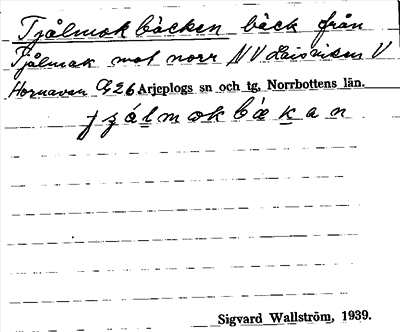 Tjålmokbäcken bäck från
Tjålmak mot norr NV Laisviken V
Hornavan G26 Arjeplogs sn och tg, Norrbottens län.
Sigvard Wallström, 1939.